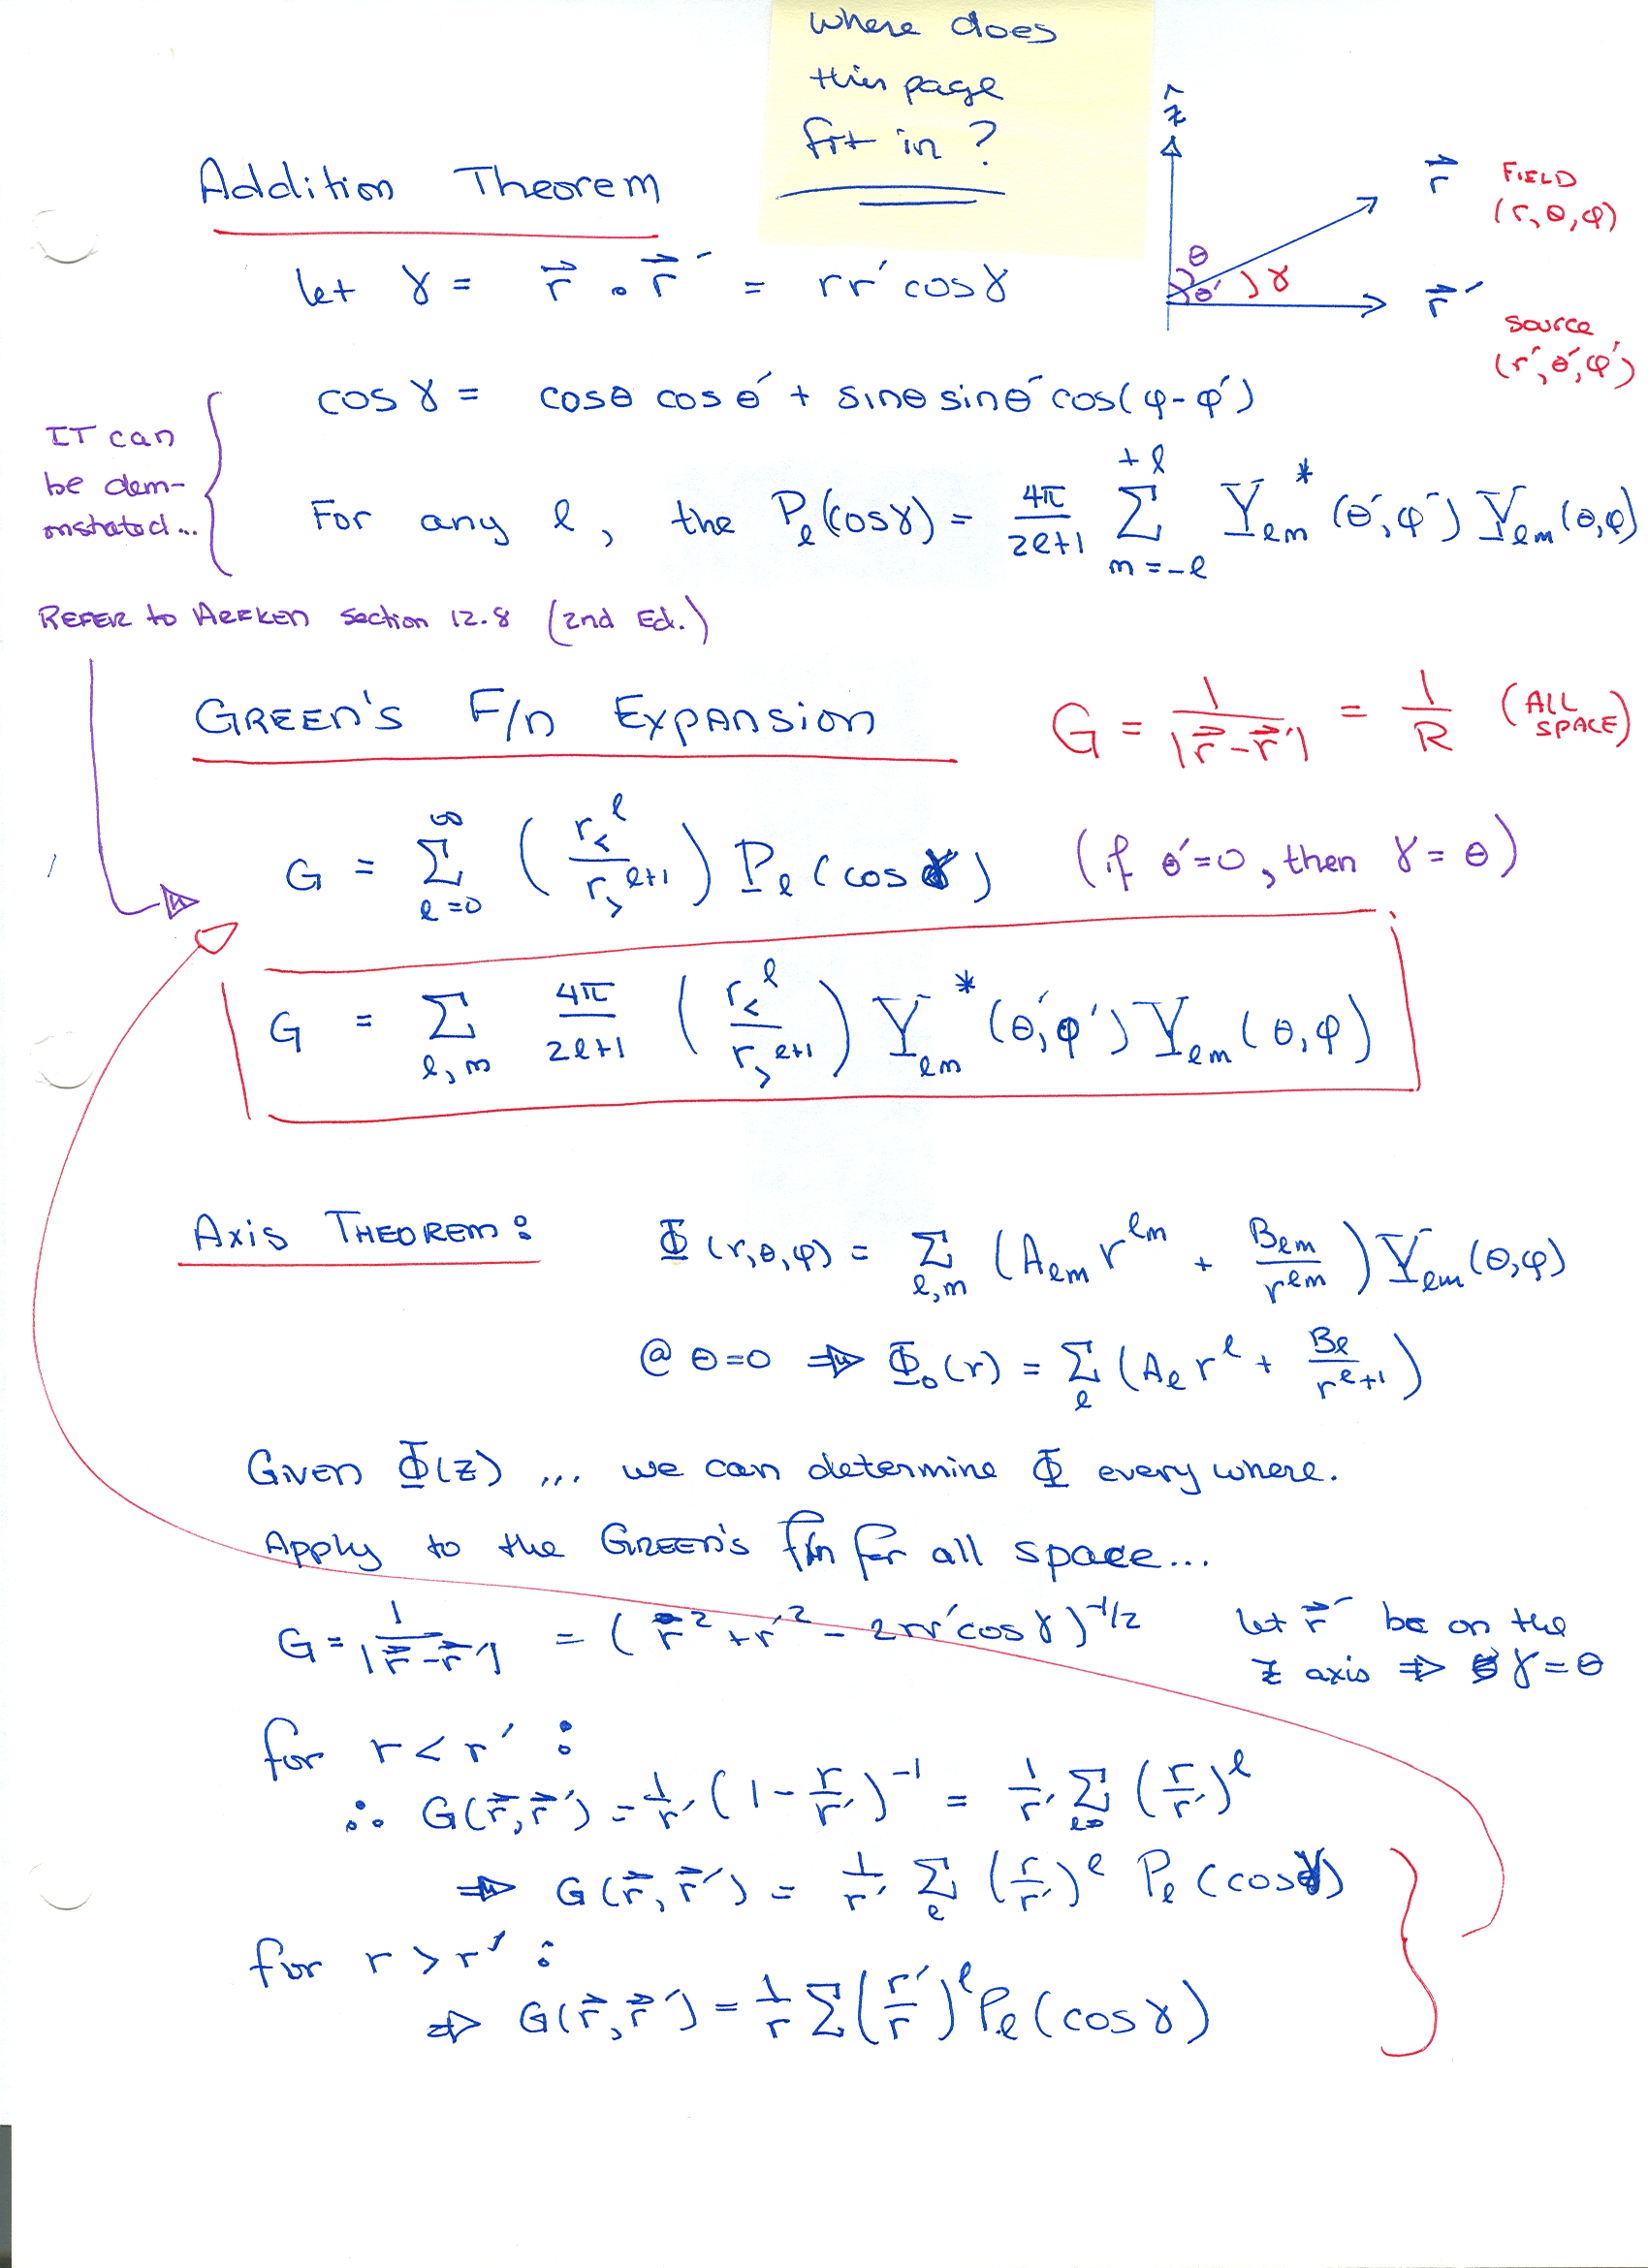 where does
this page
fit in?
Addition Theorem
ẑ
r⃗ FIELD
(r, θ, φ)
θ
θ′ γ
r⃗′
Source
(r′, θ′, φ′)
let γ = r⃗ ∘ r⃗′ = rr′ cosγ
cos γ = cosθ cosθ′ + sinθ sinθ′ cos(φ-φ′)
IT can
be dem-
onstrated...
For any ℓ, the Pℓ(cosγ) = 4π/2ℓ+1 Σ_{m=-ℓ}^{+ℓ} Yℓm*(θ′,φ′) Yℓm(θ,φ)
REFER to ARFKEN section 12.8 (2nd Ed.)
GREEN'S F/n EXPANSION
G = 1/|r⃗-r⃗′| = 1/R (ALL SPACE)
G = Σ_{ℓ=0}^{∞} (r<^ℓ / r>^{ℓ+1}) Pℓ(cos γ) (if θ′=0, then γ=θ)
G = Σ_{ℓ,m} 4π/2ℓ+1 (r<^ℓ / r>^{ℓ+1}) Yℓm*(θ′,φ′) Yℓm(θ,φ)
AXIS THEOREM:
Φ(r,θ,φ) = Σ_{ℓ,m} (Aℓm r^{ℓm} + Bℓm/r^{ℓm}) Yℓm(θ,φ)
@ θ=0 ⇒ Φ₀(r) = Σ_ℓ (Aℓ r^ℓ + Bℓ/r^{ℓ+1})
GIVEN Φ(z) ... we can determine Φ everywhere.
Apply to the GREEN'S f/n for all space...
G = 1/|r⃗-r⃗′| = (r² + r′² - 2rr′cosγ)^{-1/2}
let r⃗′ be on the
z axis ⇒ γ=θ
for r<r′ :
∴ G(r⃗,r⃗′) = 1/r′ (1 - r/r′)^{-1} = 1/r′ Σ_{ℓ=0} (r/r′)^ℓ
⇒ G(r⃗,r⃗′) = 1/r′ Σ_ℓ (r/r′)^ℓ Pℓ(cosγ)
for r>r′ :
⇒ G(r⃗,r⃗′) = 1/r Σ(r′/r)^ℓ Pℓ(cosγ)